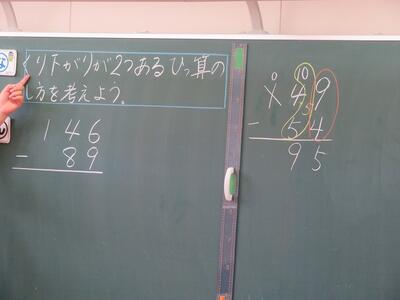 くり下がりが2つあるひっ算の
し方を考えよう。
146
- 89
0 10
149
- 54
95